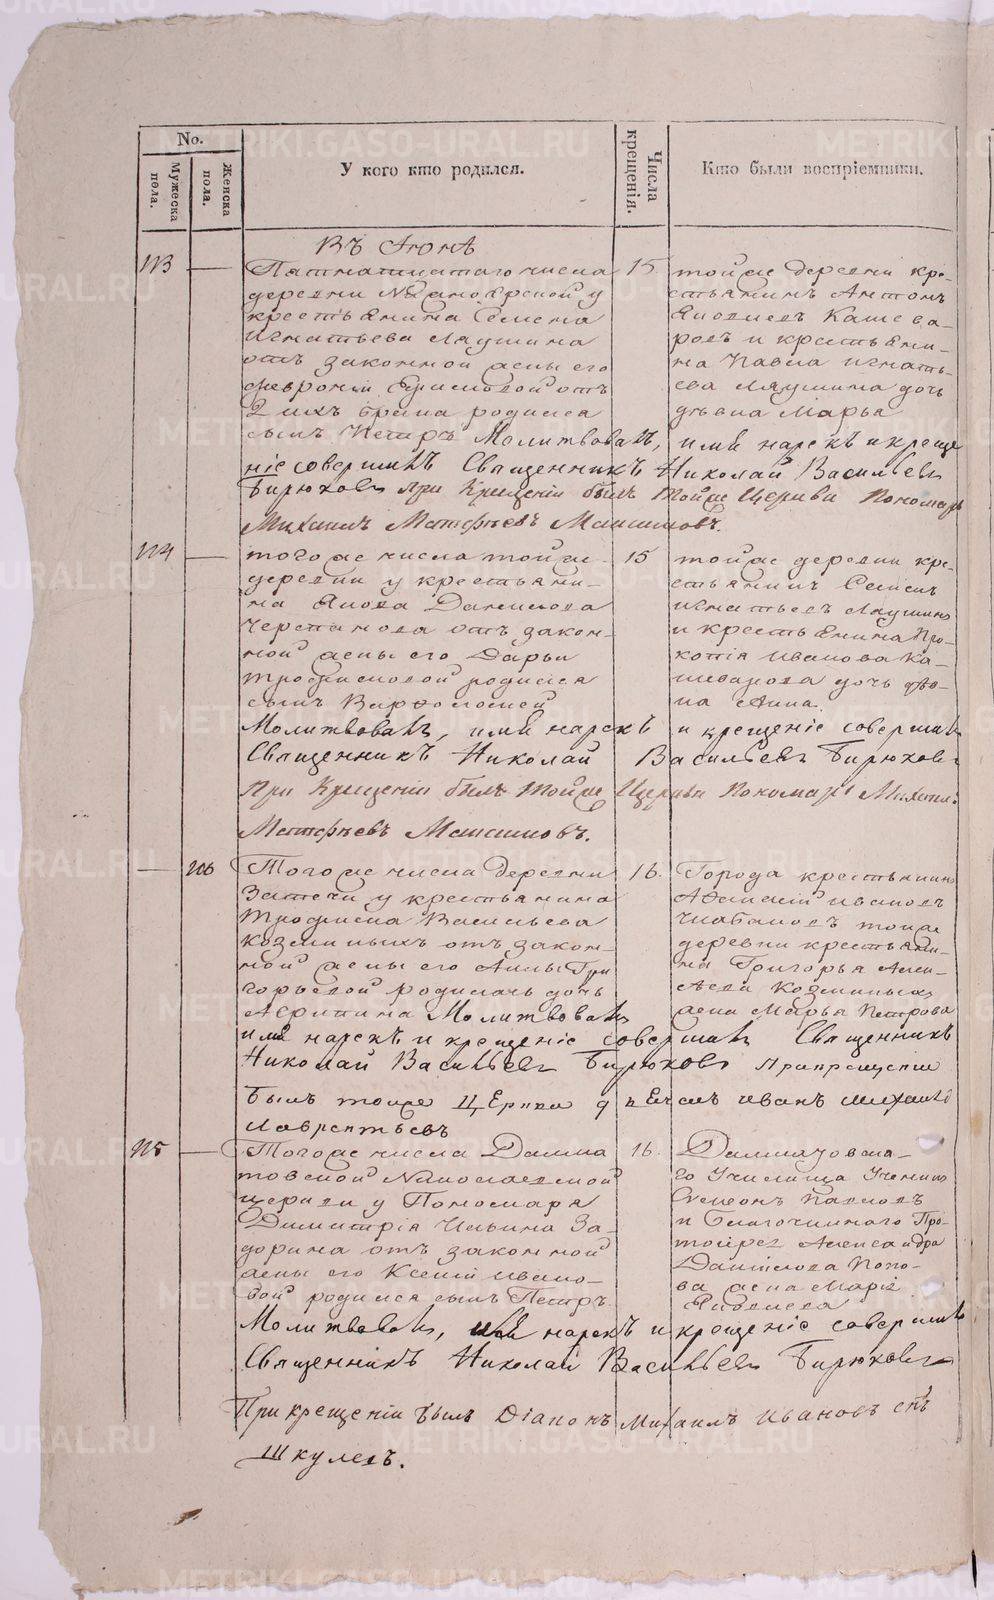 No.
Мужеска пола.
Женска пола.
У кого кто родился.
Числа крещенія.
Кто были воспріемники.
Въ Іюнѣ
113
Пятнатцатаго числа
деревни
крестьянина Семена
Игнатьева Ляушина
отъ законной жены его
Февроніи
2 ихъ брака родился
сынъ Петръ Молитвовалъ, имя нарекъ и креще
ніе совершилъ Священникъ Николай Васильевъ
Бирюковъ При Крещеніи былъ тойже Церкви Пономарь
Михаилъ Матфѣевъ Максимовъ.
15
тойже деревни кре-
стьянинъ Антонъ
Яковлевъ Кашева-
ровъ и крестьяни-
на Павла Игнать-
ева Ляушина дочь
дѣвка Марья
114
того же числа тойже
деревни у крестьяни-
на Якова Данилова
Черепанова отъ закон-
ной жены его Дарьи
Трофимовой родился
сынъ Варфоломей
Молитвовалъ, имя нарекъ и крещеніе совершилъ
Священникъ Николай Васильевъ Бирюковъ
При Крещеніи былъ тойже Церкви Пономарь Михаилъ
Матфѣевъ Максимовъ.
15
тойже деревни кре-
стьянинъ Семенъ
Игнатьевъ Ляушинъ
и крестьянина Про-
копія Иванова Ка-
шеварова дочь дѣв-
ка Анна.
106
Того же числа деревни
Затечи у крестьянина
Трофима Васильева
Козминыхъ отъ закон-
ной жены его Анны Гри
горьевой родилась дочь
Агрипина Молитвовалъ
имя нарекъ и крещеніе совершилъ Священникъ
Николай Васильевъ Бирюковъ При крещеніи
былъ тойже Церкви дьячекъ Иванъ
Лаврентьевъ
16.
Города крестьянинъ
Афанасій Ивановъ
тойже
деревни крестьяни-
на Григорья Алек-
сѣева Козминыхъ
жена Марья Петрова
115
Того же числа Далма
товской Николаевской
церкви у Пономаря
Димитрія Ильина За-
дорина отъ законной
жены его Ксеніи Ивано-
вой родился сынъ Петръ
Молитвовалъ, имя нарекъ и крещеніе совершилъ
Священникъ Николай Васильевъ Бирюковъ
При крещеніи былъ Діаконъ Михаилъ Ивановъ сынъ
Шкулевъ.
16.
Далматовска-
го Училища Ученикъ
Симеонъ Павловъ
и Благочиннаго Про-
тоіерея Александра
Даніилова Попо-
ва жена Марія
Яковлева